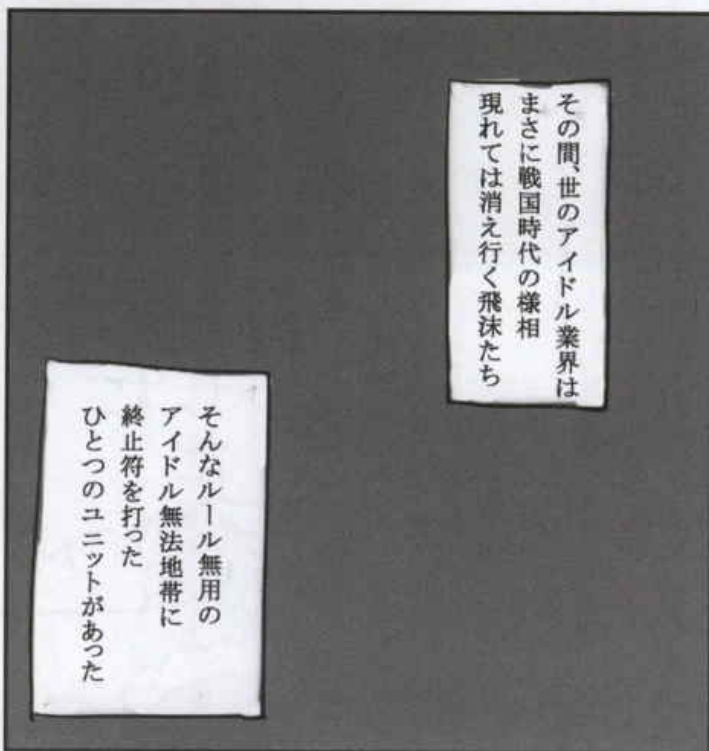 その間、世のアイドル業界は
まさに戦国時代の様相
現れては消え行く飛沫たち
そんなルール無用の
アイドル無法地帯に
終止符を打った
ひとつのユニットがあった